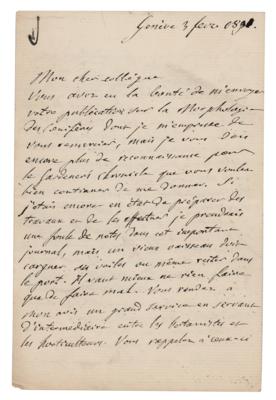 Genève 3 févr 1891.
Mon cher collègue
Vous avez eu la bonté de m'envoyer
votre publication sur la Morphologie
des Conifères dont je m'empresse de
vous remercier, mais je vous dois
encore plus de reconnaissance pour
le Gardeners chronicle que vous voulez
bien continuer de me donner. Si
j'étais encore en état de préparer des
travaux ou de les effectuer je prendrais
une foule de notes dans cet important
journal, mais un vieux vaisseau doit
carguer ses voiles ou même rester dans
le port. Il vaut mieux ne rien faire
que de faire mal. Vous rendez à
mon avis un grand service en servant
d'intermédiaire entre les botanistes et
les horticulteurs. Vous rappelez à ceux-ci